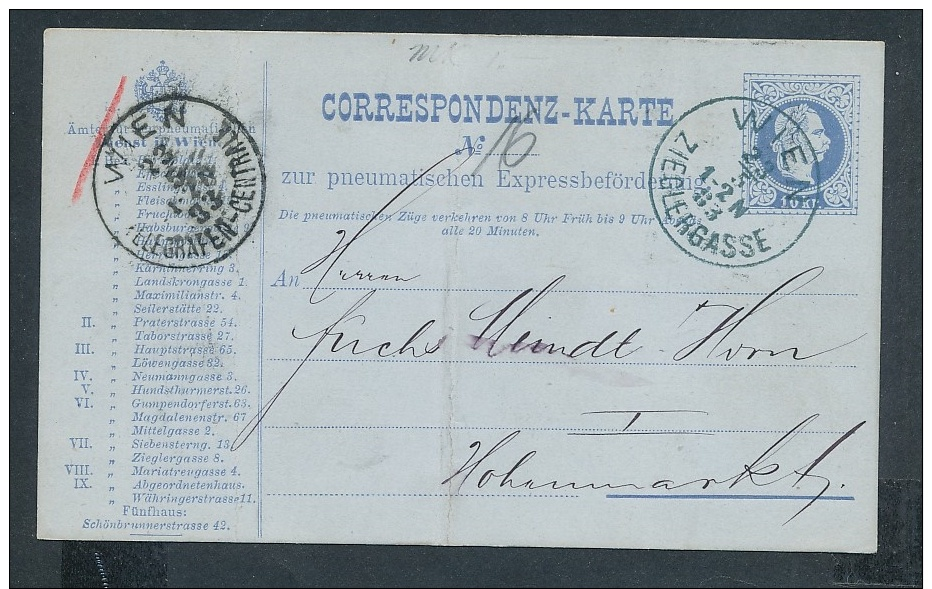 CORRESPONDENZ-KARTE
№ 16
zur pneumatischen Expressbeförderung
Die pneumatischen Züge verkehren von 8 Uhr Früh bis 9 Uhr Abends
alle 20 Minuten.
An Herren
Fuchs Meindl - Horn
I
Hohenmarkt.
WIEN
ZIEGLERGASSE
1-2N
83
10 Kr.
WIEN
TELEGRAFEN-CENTRALE
83
Ämter
Dienst in Wien
Esslin
Fleischma
Habsburger
Kärnthnerring 3.
" Landskrongasse 1.
" Maximilianstr. 4.
" Seilerstätte 22.
II. " Praterstrasse 54.
" Taborstrasse 27.
III. " Hauptstrasse 65.
" Löwengasse 32.
IV. " Neumanngasse 3.
V. " Hundsthurmerst. 26.
VI. " Gumpendorferst. 63.
" Magdalenenstr. 67
" Mittelgasse 2.
VII. " Siebensterng. 13.
" Zieglergasse 8.
VIII. " Mariatreugasse 4.
IX. " Abgeordnetenhaus.
" Währingerstrasse 11.
Fünfhaus:
Schönbrunnerstrasse 42.